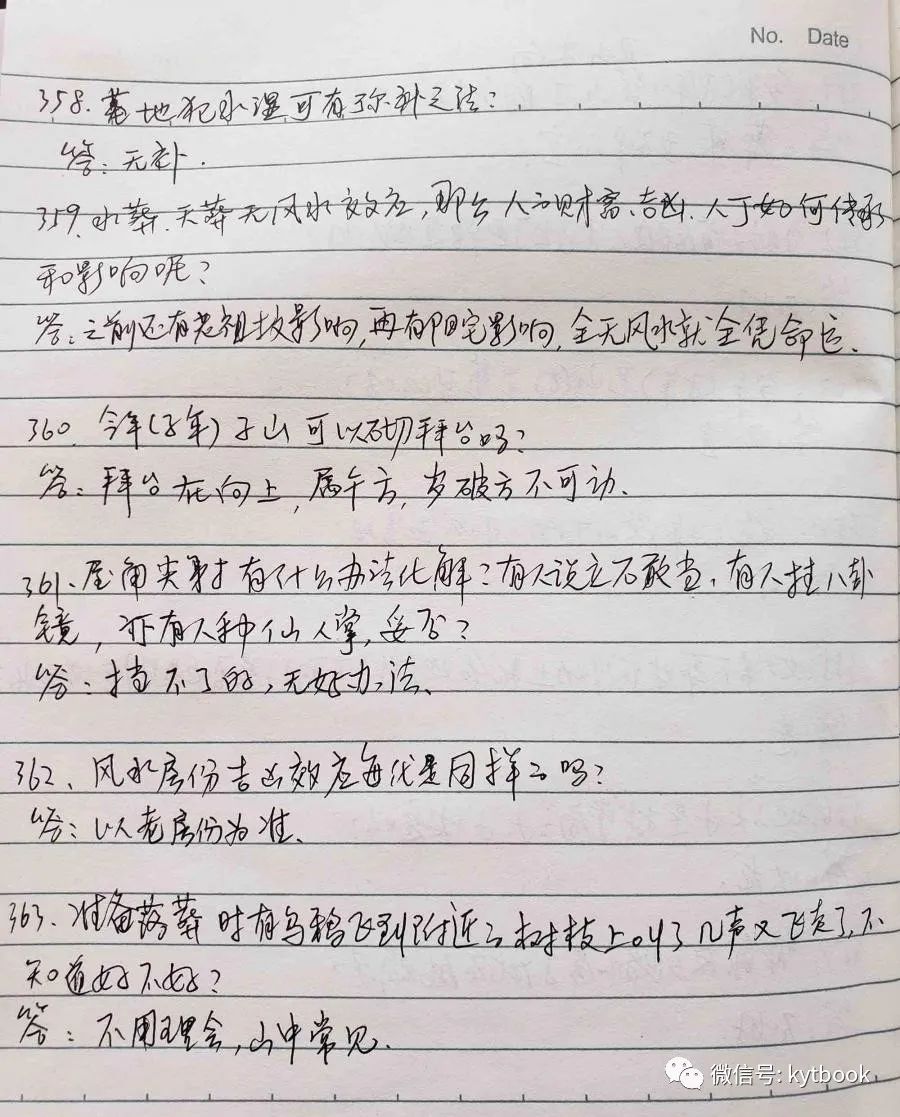 No. Date
358. 墓地犯水湿可有弥补之法?
答: 无补.
359. 水葬.天葬无风水效应,那么人的财富、吉凶.人丁如何传承
和影响呢?
答:之前还有老祖坟影响,再有阳宅影响,全无风水就全凭命运.
360. 今年(子年)子山可以砌拜台吗?
答:拜台在向上,属午方,岁破方不可动.
361.屋角尖射有什么办法化解?有人说立石敢当,有人挂八卦
镜,亦有人种仙人掌,妥否?
答:挡不了的,无好办法.
362、风水房份吉凶效应每代是同样的吗?
答:以老房份为准.
363.准备落葬时有乌鸦飞到附近的树枝上叫了几声又飞走了,不
知道好不好?
答:不用理会,山中常见.
微信号: kytbook